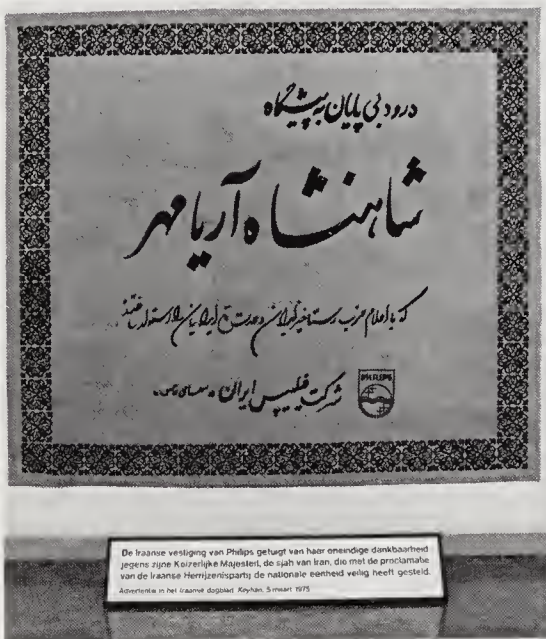 درود بی پایان به پیشگاه
شاهنشاه آریامهر
که با اعلام حزب رستاخیز ایران وحدت ایرانیان را
شرکت فیلیپس ایران
PHILIPS
De Iraanse vestiging van Philips getuigt van haar oneindige dankbaarheid
jegens zijne Keizerlijke Majesteit, de sjah van Iran, die met de proclamatie
van de Iraanse Herrijzenispartij de nationale eenheid veilig heeft gesteld.
Advertentie in het Iraanse dagblad Keyhan, 5 maart 1975